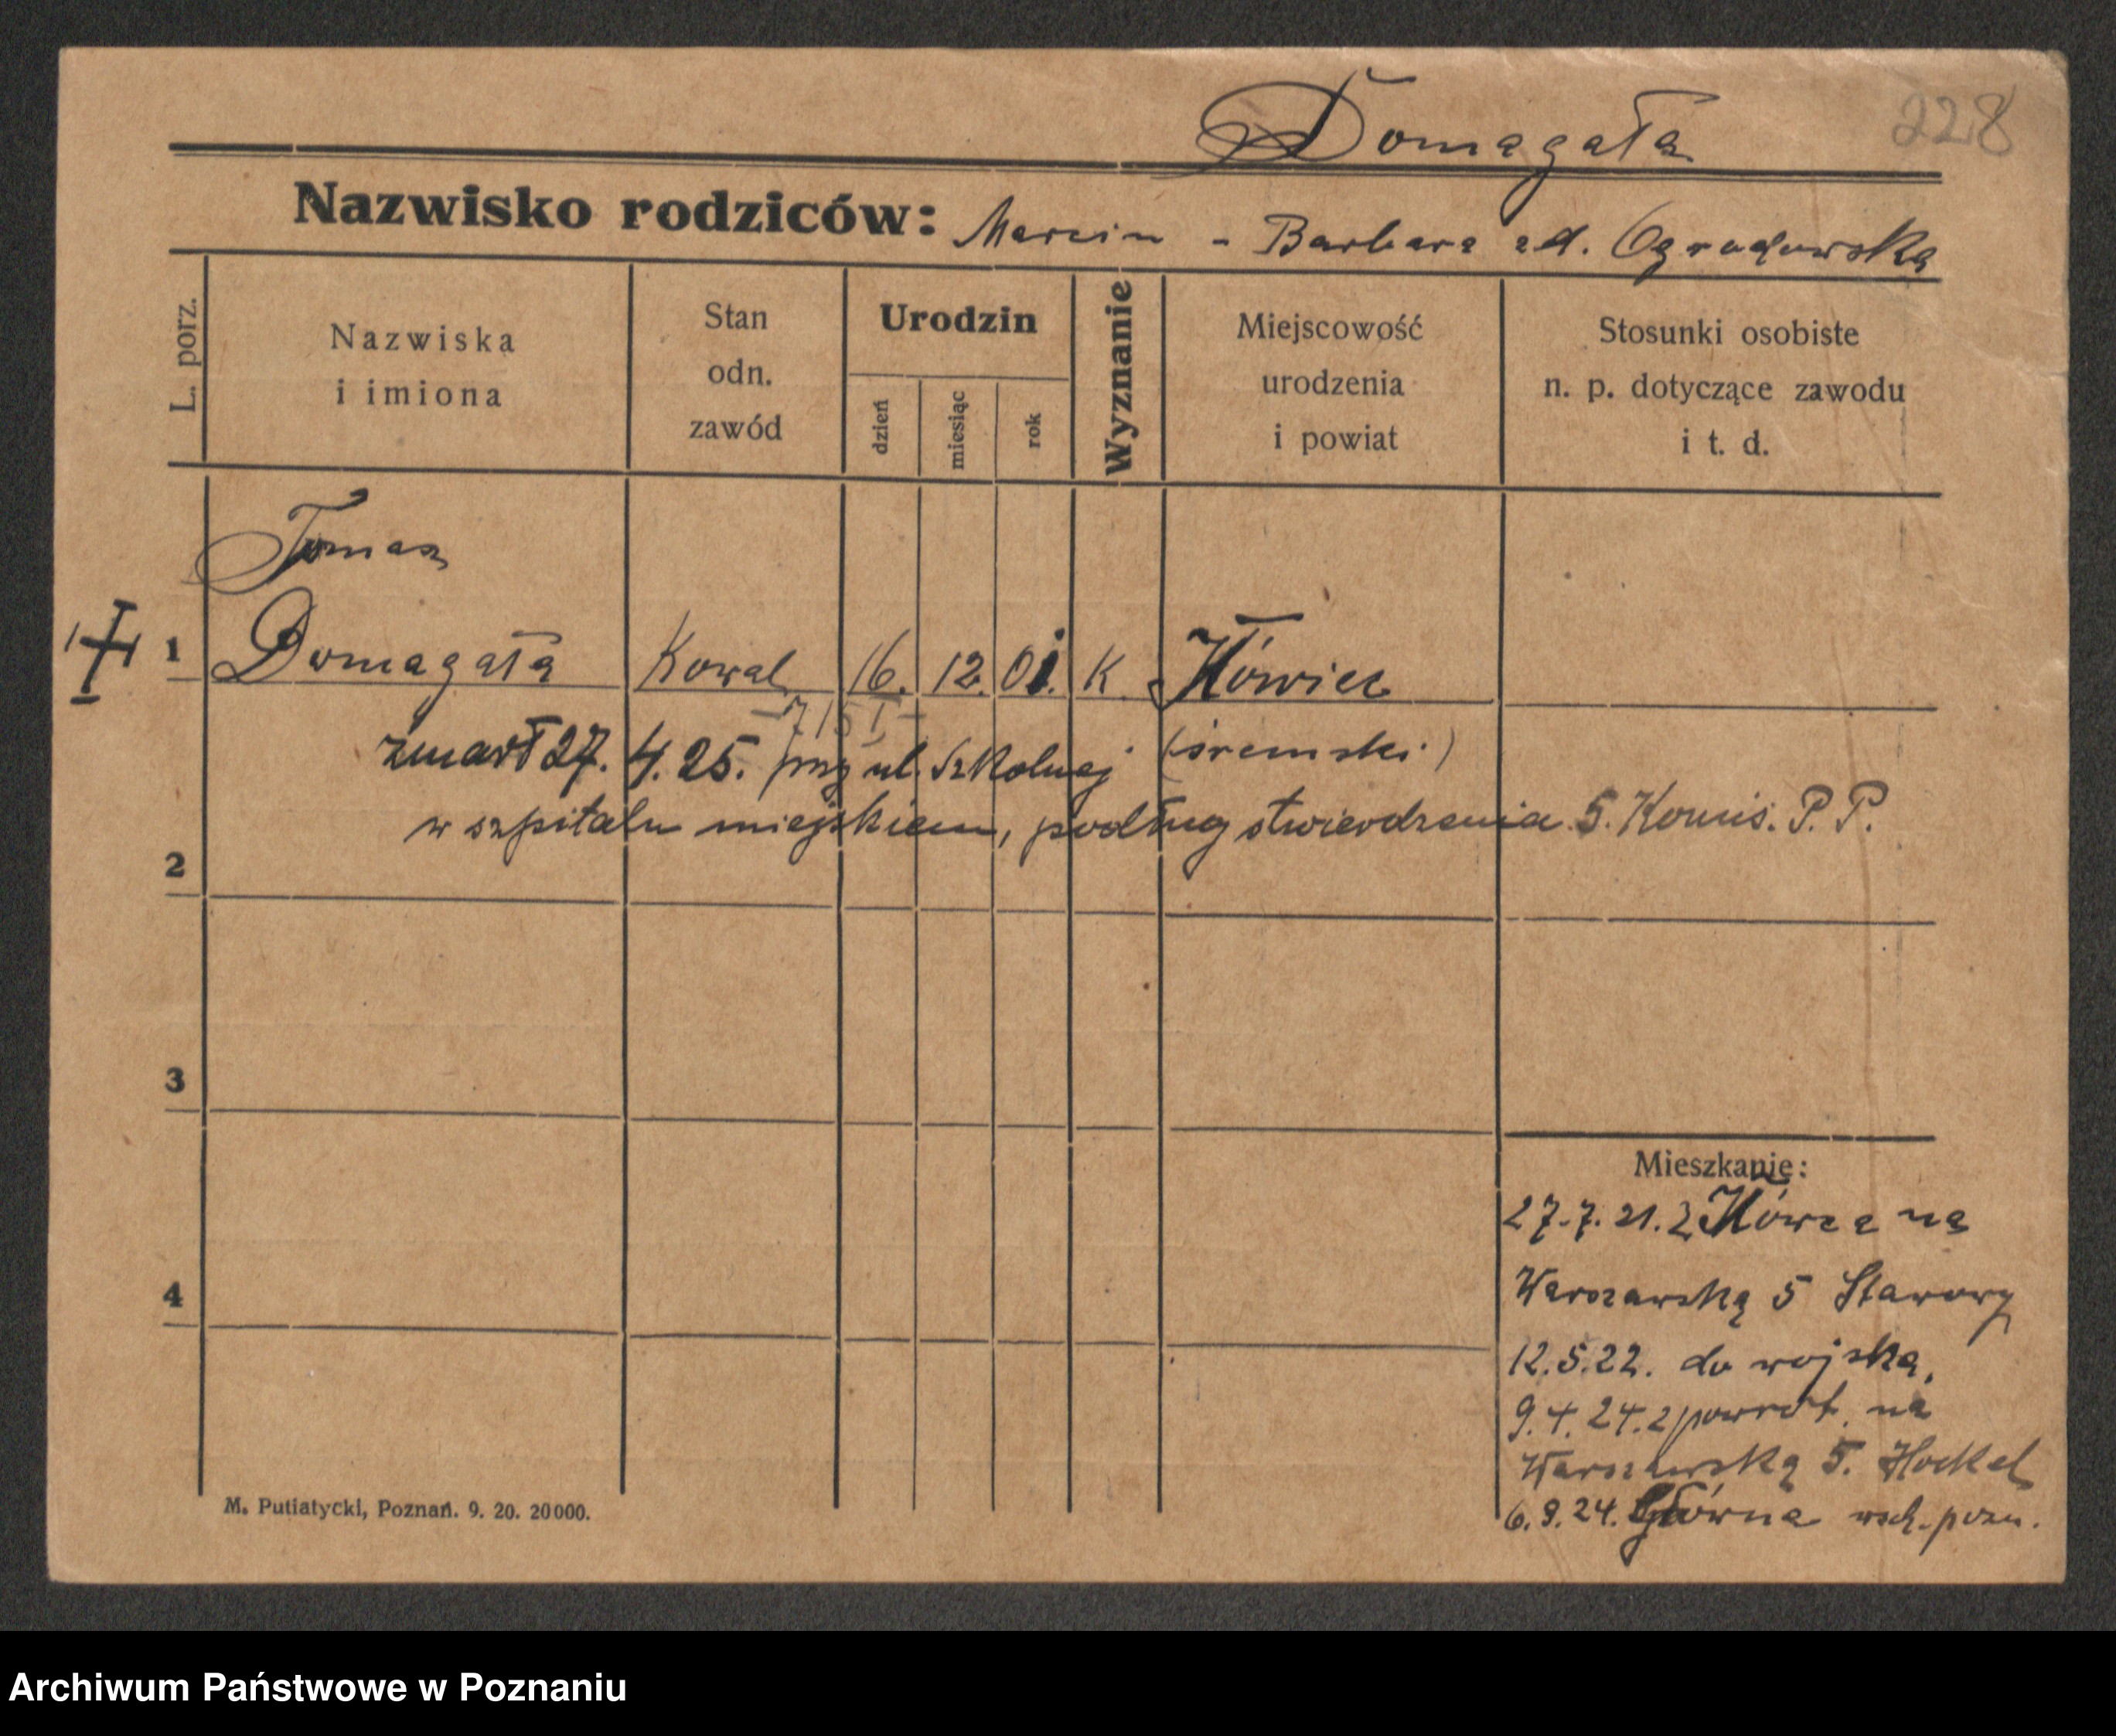 Domagała
228
Nazwisko rodziców: Marcin - Barbara zd. Ogrodowska
L. porz.
Nazwiska
i imiona
Stan
odn.
zawód
Urodzin
dzień
miesiąc
rok
Wyznanie
Miejscowość
urodzenia
i powiat
Stosunki osobiste
n. p. dotyczące zawodu
i t. d.
Tomasz
1 Domagała Kowal 16. 12. 01. K Kówiec
zmarł 27. 4. 25. przy ul. Szkolnej (śremski)
w szpitalu miejskiem, podług stwierdzenia 5. Komis. P. P.
2
3
4
Mieszkanie:
27.7.21. z Kówca na
Warszawską 5 Stawowy
12.5.22. do wojska,
9.4.24. z powrot. na
Warszawską 5. Hockel
6.9.24. Główna wsch. pozn.
M. Putiatycki, Poznań. 9. 20. 20000.
Archiwum Państwowe w Poznaniu